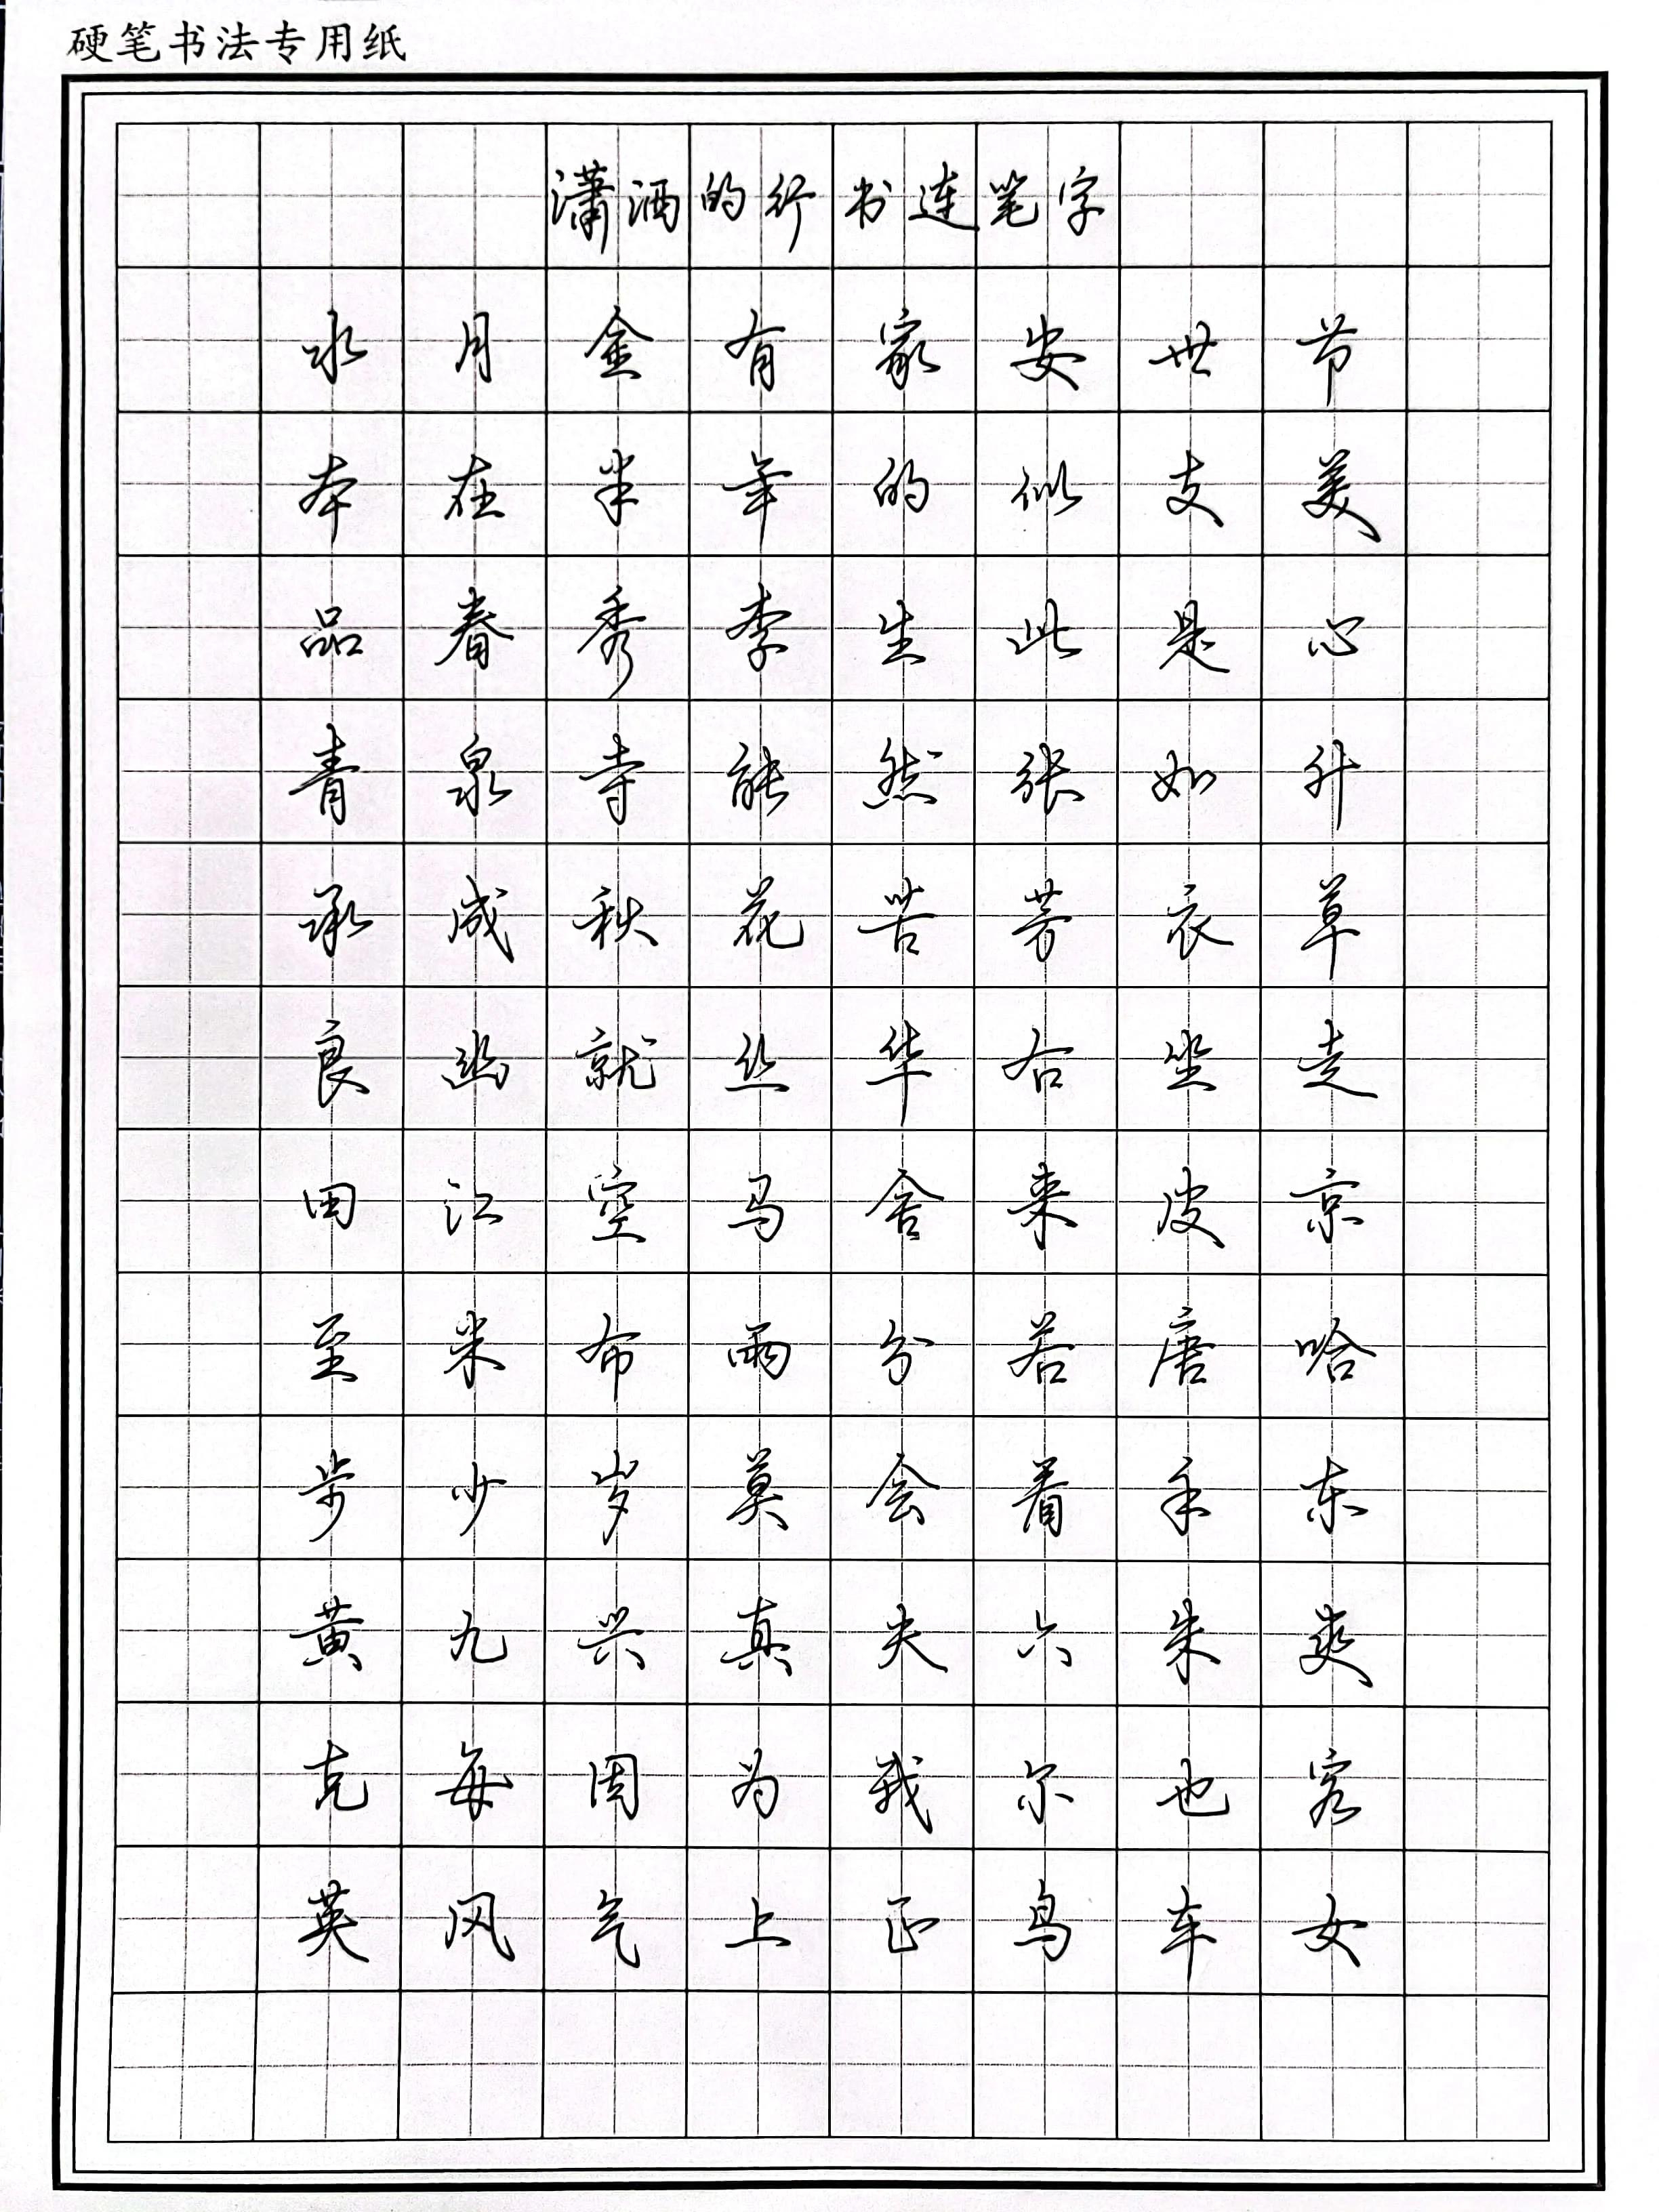 硬笔书法专用纸
潇洒的行书连笔字
水月金有家安世节
本在半年的似支美
品春秀李生此是心
青泉寺能然张如升
承成秋花苦芳衣草
良幽就丝华右坐走
田江空马舍来皮京
至米布雨分若唐哈
步少岁莫会着手东
黄九兴真夫六朱爽
克每周为我尔也客
英风气上正鸟车女